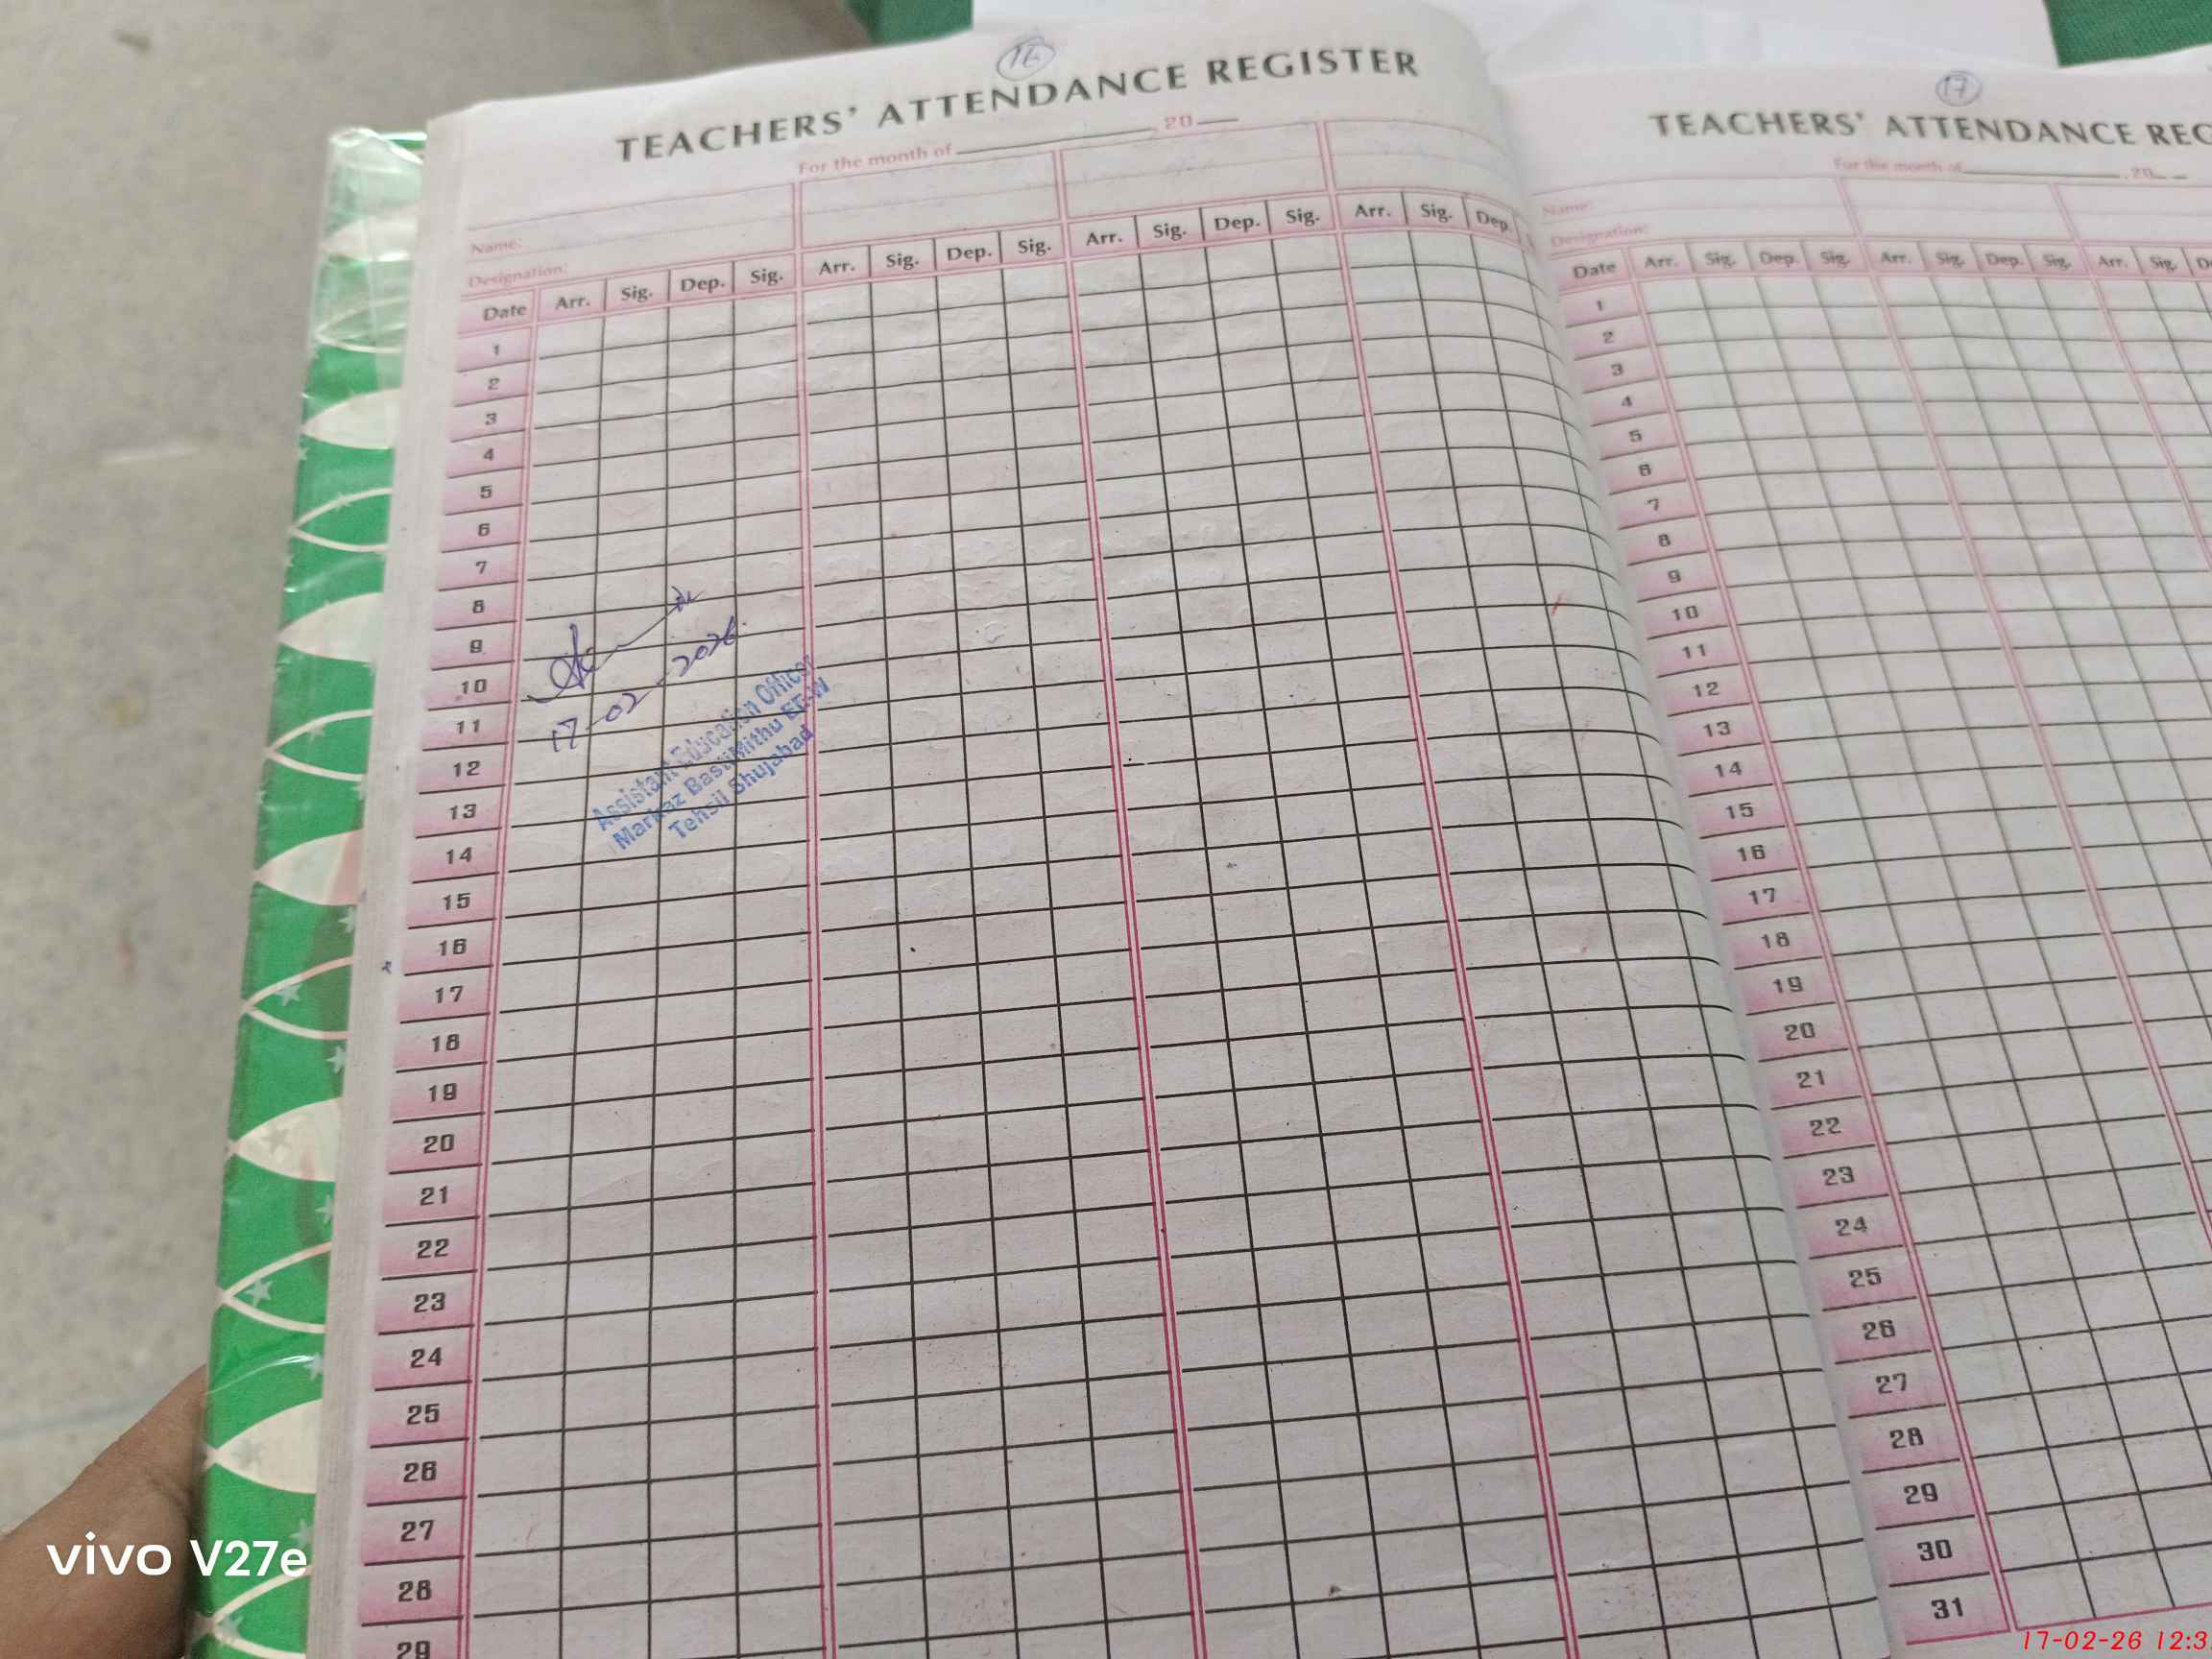 16
TEACHERS' ATTENDANCE REGISTER
For the month of 20
Name:
Designation:
Date Arr. Sig. Dep. Sig. Arr. Sig. Dep. Sig. Arr. Sig. Dep. Sig. Arr. Sig. Dep.
1
2
3
4
5
6
7
8
9
10
11
12
13
14
15
16
17
18
19
20
21
22
23
24
25
26
27
28
29
17-02-2026
Assistant Education Officer
Markaz Basti Mithu EE-W
Tehsil Shujabad
17
TEACHERS' ATTENDANCE REG
For the month of 20
Name:
Designation:
Date Arr. Sig. Dep. Sig. Arr. Sig. Dep. Sig. Arr. Sig. D
1
2
3
4
5
6
7
8
9
10
11
12
13
14
15
16
17
18
19
20
21
22
23
24
25
26
27
28
29
30
31
vivo V27e
17-02-26 12:3